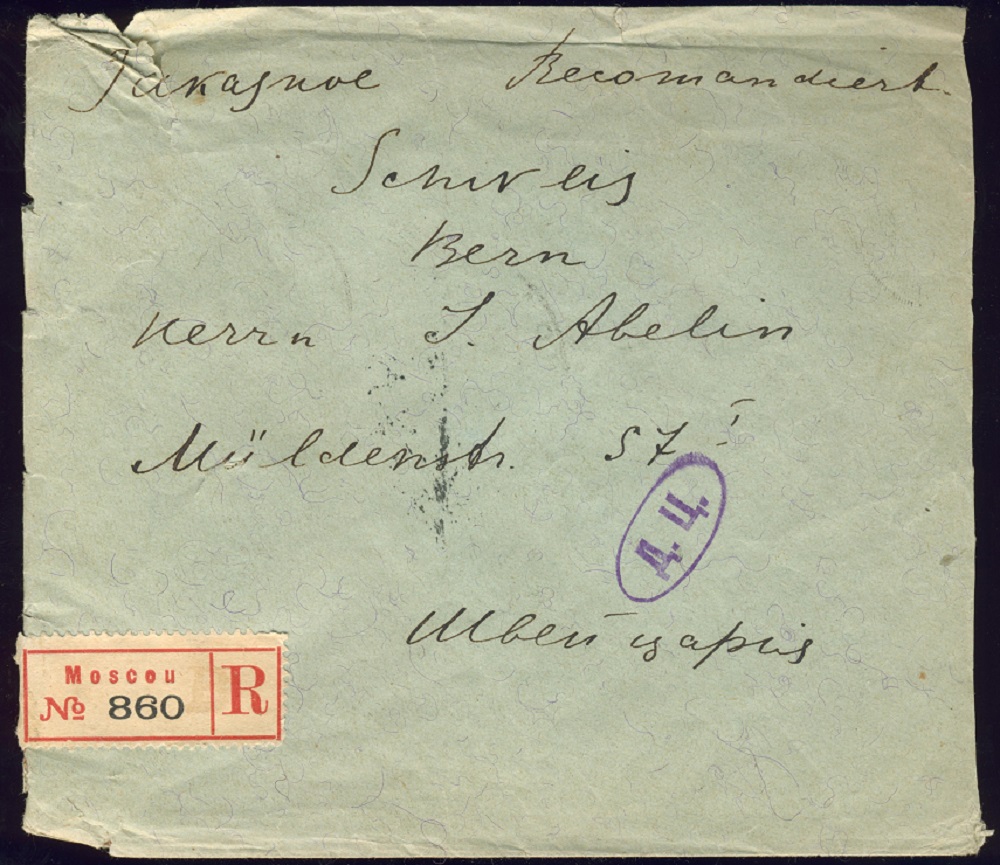 Заказное Recomandiert.
Schweis
Bern
Herrn J. Abelin
Müldenstr. 57 I
Д. Ц.
Швейцарія
Moscou
№ 860
R